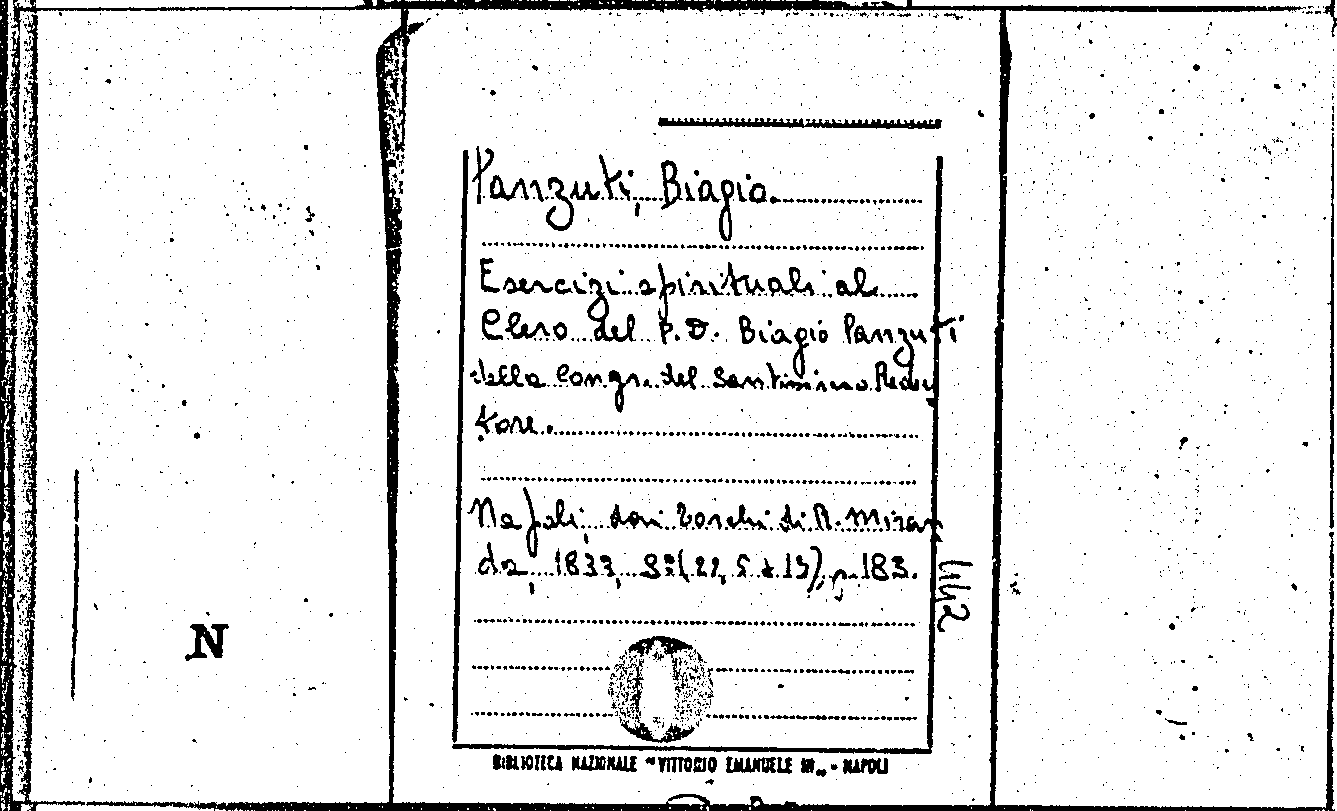 Panzuti, Biagio.
Esercizi spirituali al
Clero del P.D. Biagio Panzuti
della Congr. del Santissimo Reden
tore.
Napoli, dai Torchi di R. Miran
da, 1833, 8°(22,5 x 13), p. 183.
442
N
BIBLIOTECA NAZIONALE "VITTORIO EMANUELE III" - NAPOLI